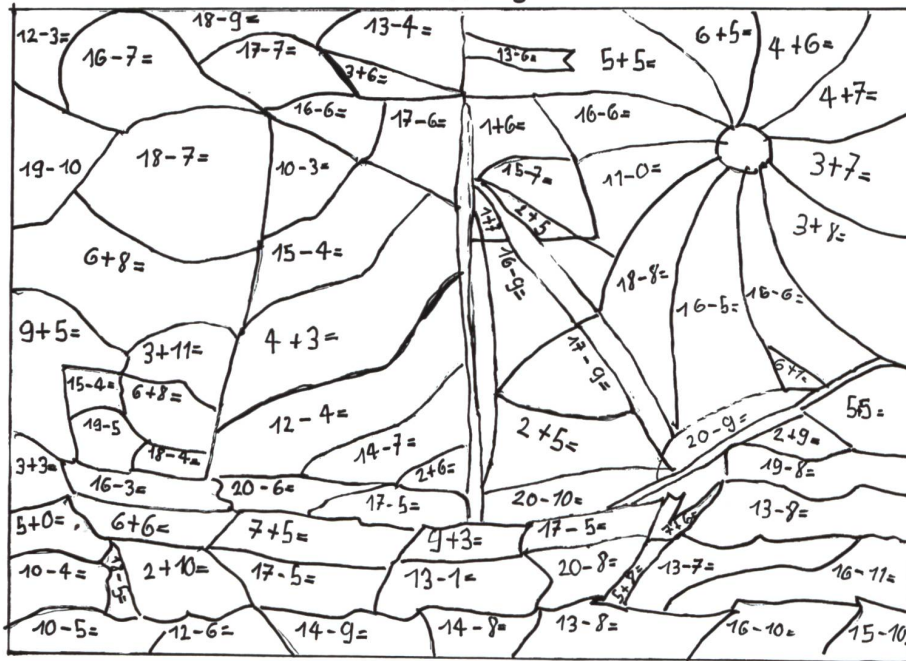 18-9=
13-4=
6+5=
4+6=
12-3=
16-7=
17-7=
13-6=
5+5=
3+6=
4+7=
16-6=
17-6=
1+6=
16-6=
19-10
18-7=
10-3=
15-7=
11-0=
3+7=
2+5
3+8=
6+8=
15-4=
16-9=
18-8=
16-5=
16-6=
9+5=
3+11=
4+3=
17-9=
6+1=
15-4=
6+8=
19-5
12-4=
2+5=
20-9=
5+5=
2+9=
18-4=
14-7=
3+3=
16-3=
20-6=
2+6=
19-8=
17-5=
20-10=
13-8=
5+0=
6+6=
7+5=
9+3=
17-5=
7+6=
10-4=
2+10=
17-5=
13-1=
20-8=
13-7=
16-11=
10-5=
12-6=
14-9=
14-8=
13-8=
16-10=
15-10